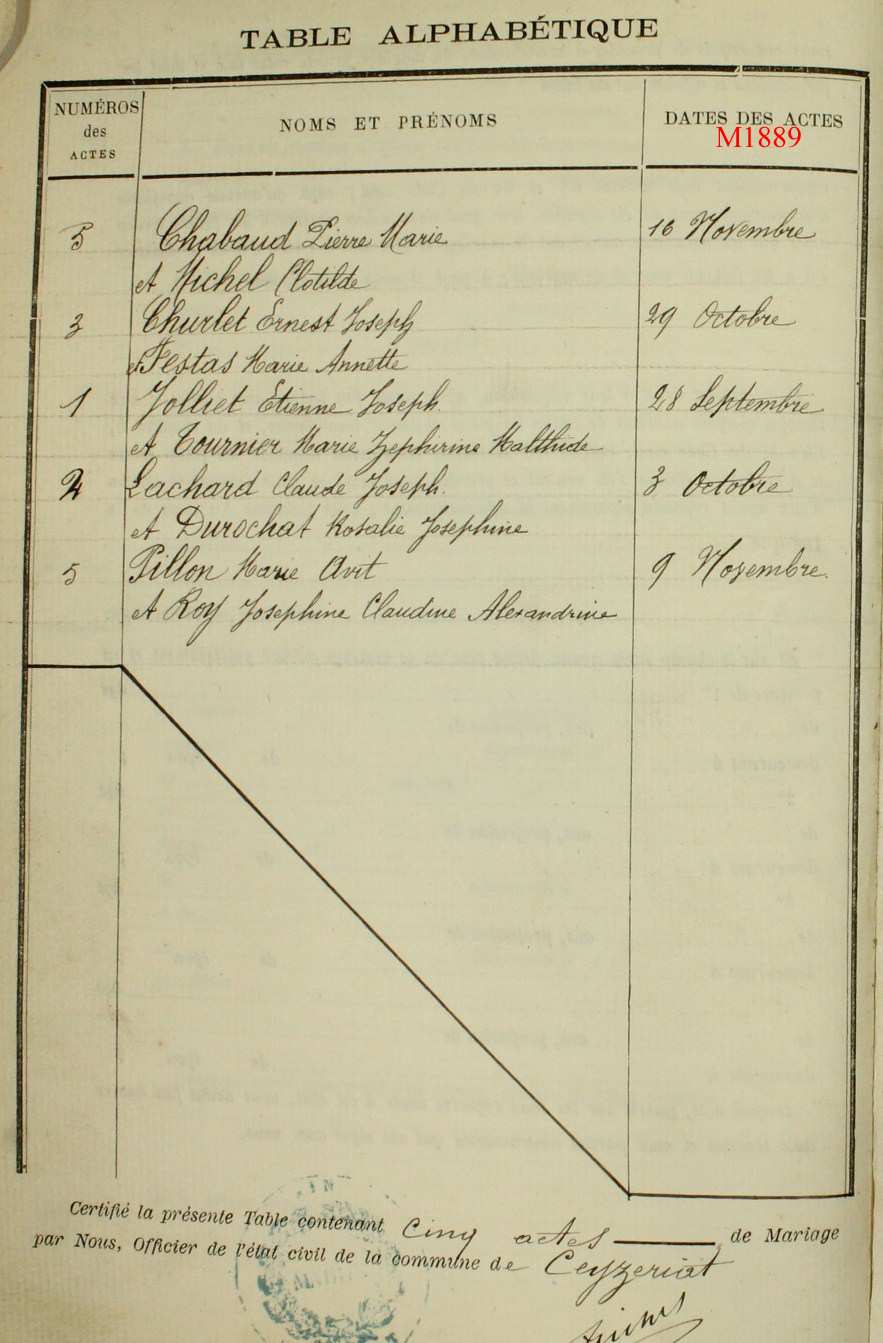 TABLE ALPHABÉTIQUE
NUMÉROS des ACTES
NOMS ET PRÉNOMS
DATES DES ACTES
M1889
5 Chabaud Pierre Marie 16 Novembre
et Michel Clotilde
3 Churlet Ernest Joseph 29 Octobre
et Festas Marie Annette
1 Jolliet Etienne Joseph 28 Septembre
et Tournier Marie Zephirine Malthide
2 Lachard Claude Joseph 3 Octobre
et Durochat Rosalie Josephine
5 Pillon Marie Avit 9 Novembre
et Roy Josephine Claudine Alexandrine
Certifié la présente Table contenant Cinq actes de Mariage
par Nous, Officier de l'état civil de la commune de Ceyzeriat